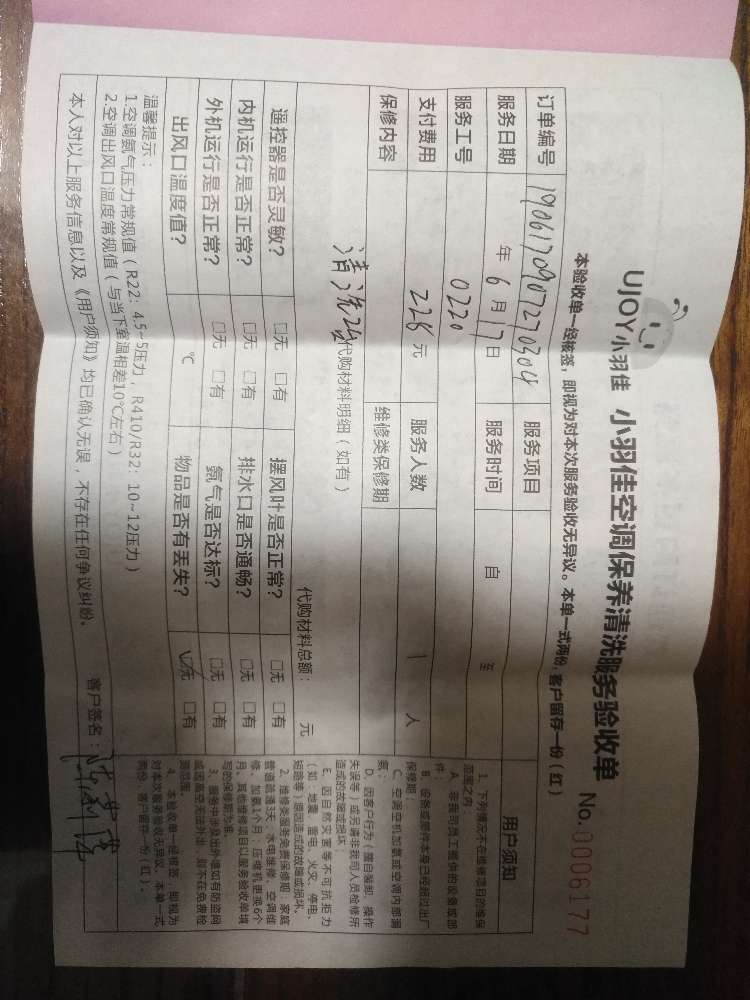 UJOY小羽佳 小羽佳空调保养清洗服务验收单 No.0006177
本验收单一经核签，即视为对本次服务验收无异议。本单一式两份，客户留存一份（红）
订单编号 190617090727030４ 服务项目
服务日期 年 6 月 17 日 服务时间 自 至
服务工号 0220
支付费用 226 元 服务人数 1 人
保修内容 维修类保修期
清洗2台
代购材料明细（如有） 代购材料总额： 元
遥控器是否灵敏？ □无 □有 摆风叶是否正常？ □无 □有
内机运行是否正常？ □无 □有 排水口是否通畅？ □无 □有
外机运行是否正常？ □无 □有 氨气是否达标？ □无 □有
出风口温度值？ ℃ 物品是否有丢失？ ☑无 □有
温馨提示：
1.空调氨气压力常规值（R22：4.5~5压力，R410/R32：10~12压力）
2空调出风口温度常规值（与当下室温相差10℃左右）
本人对以上服务信息以及《用户须知》均已确认无误，不存在任何争议纠纷。 客户签名：
用户须知
1、下列情况不在维修项目的维保
范围之内：
A、非我司员工提供的设备或部
件；
B、设备或部件本身已经超过出厂
保修期；
C、空调空机加氨或空调内部漏
氨；
D、因客户行为（擅自装卸、操作
失误等）或另请非我司人员检修所
造成的故障或损坏；
E、因自然灾害等不可抗拒力
（如：地震、雷电、火灾、停电、
短路等）原因造成的故障或损坏。
2、维修类服务免费保修期：家庭
管道疏通3天；水电维修、空调维
修、加氨1个月；压缩机更换6个
月、其他维修项目以服务验收单填
写的保修期为准。
3、服务中涉及出外墙如有防盗网
或因高空无法外出，则不在免费检
测范围。
4、本验收单一经核签，即视为
对本次服务验收无异议。本单一式
两份，客户留存一份（红）。